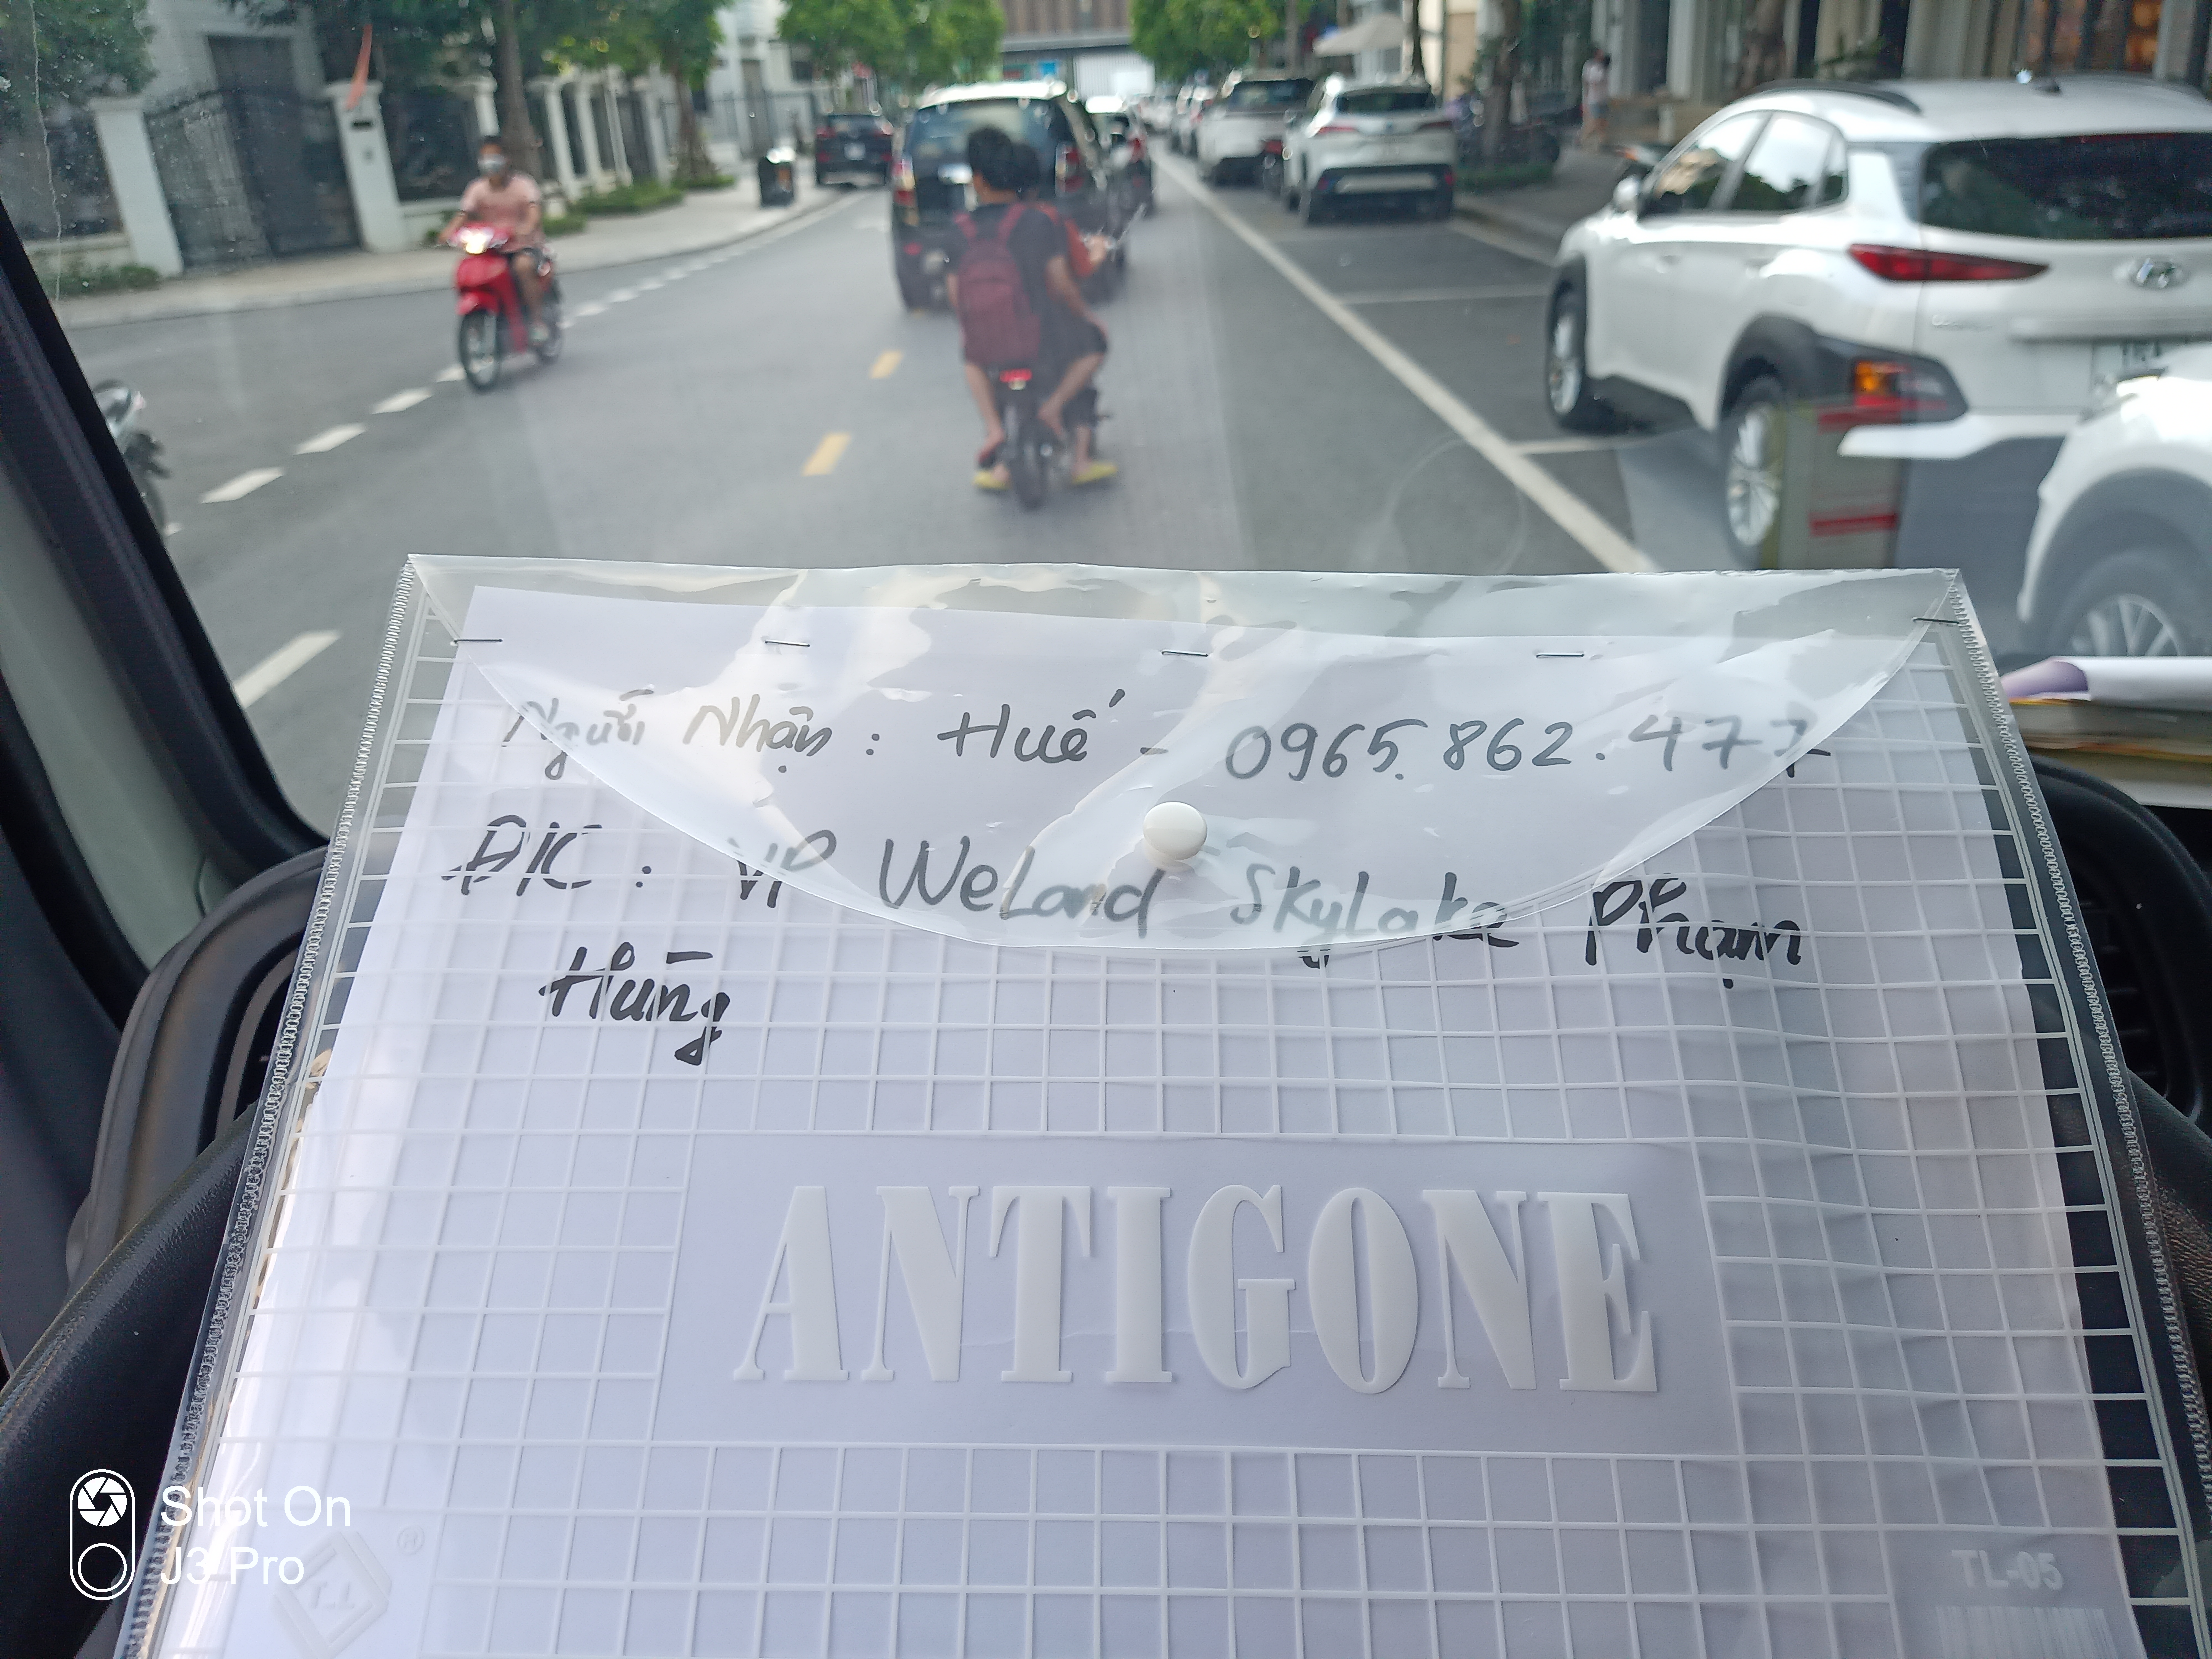 Người Nhận : Huế - 0965.862.477
Đ/C : VP WeLand SkyLake Phạm
Hùng
ANTIGONE
TL-05
Shot On
J3 Pro